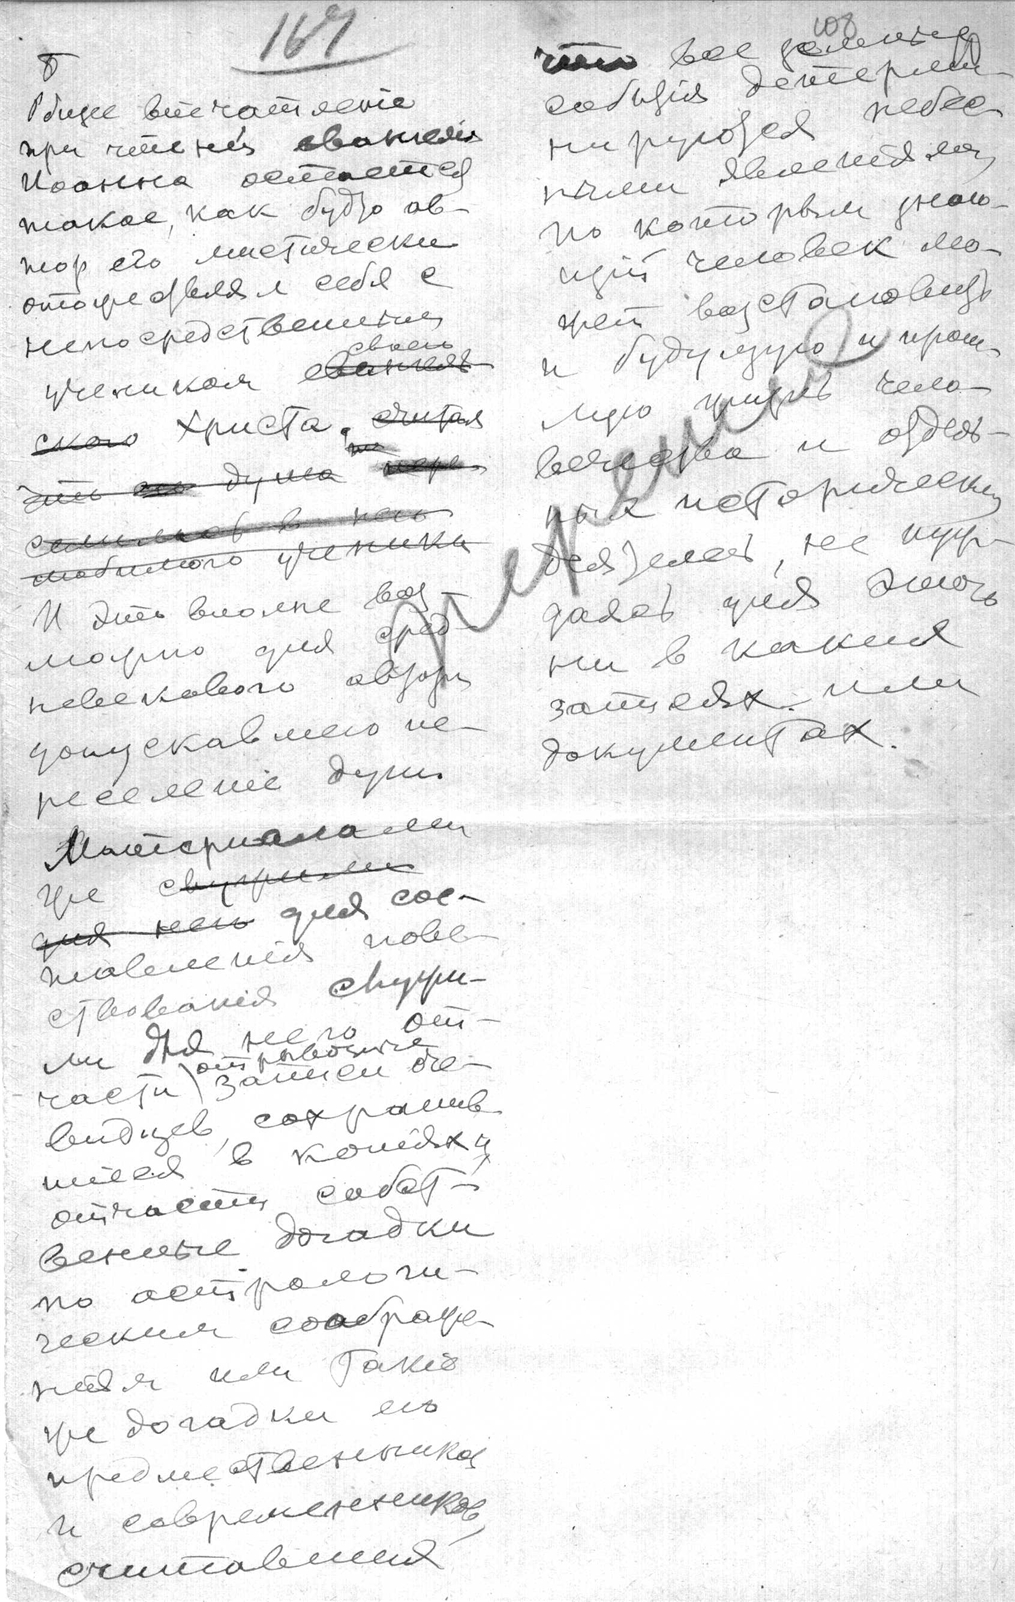 167
108
Общее впечатленіе
при чтеніи евангелія
Иоанна остается
такое, как будто ав-
тор его мистически
отождествлял себя с
непосредственным
своего
учеником евангель-
скаго Христа. считая
что его душа
селилась в него
любимого ученика
И это вполне воз-
можно для сред-
невекового автора
допускавшего пе-
реселение душ.
Материалами
же служили
для него для сос-
тавления пове-
ствования служи-
ли для него от-
отрывочные
части записи оче-
видцев, сохранив-
шиеся в копиях и
отчасти собст-
венные догадки
по астрологи-
ческим соображе-
ніям или такіе
же догадки его
предшественников
и современников,
считавших
что все земные
события детерми-
нируются небес-
ными явлениями,
по которым знаю-
щій человек мо-
жет возстановить
и будущую и прош-
лую жизнь чело-
вечества и отдель-
ных исторических
деятелей, не нуж-
даясь для этого
ни в каких
записях или
документах.